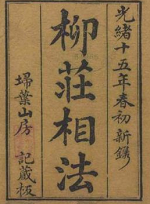 光緒十五年春初新鐫
柳莊相法
埽葉山房 記藏板